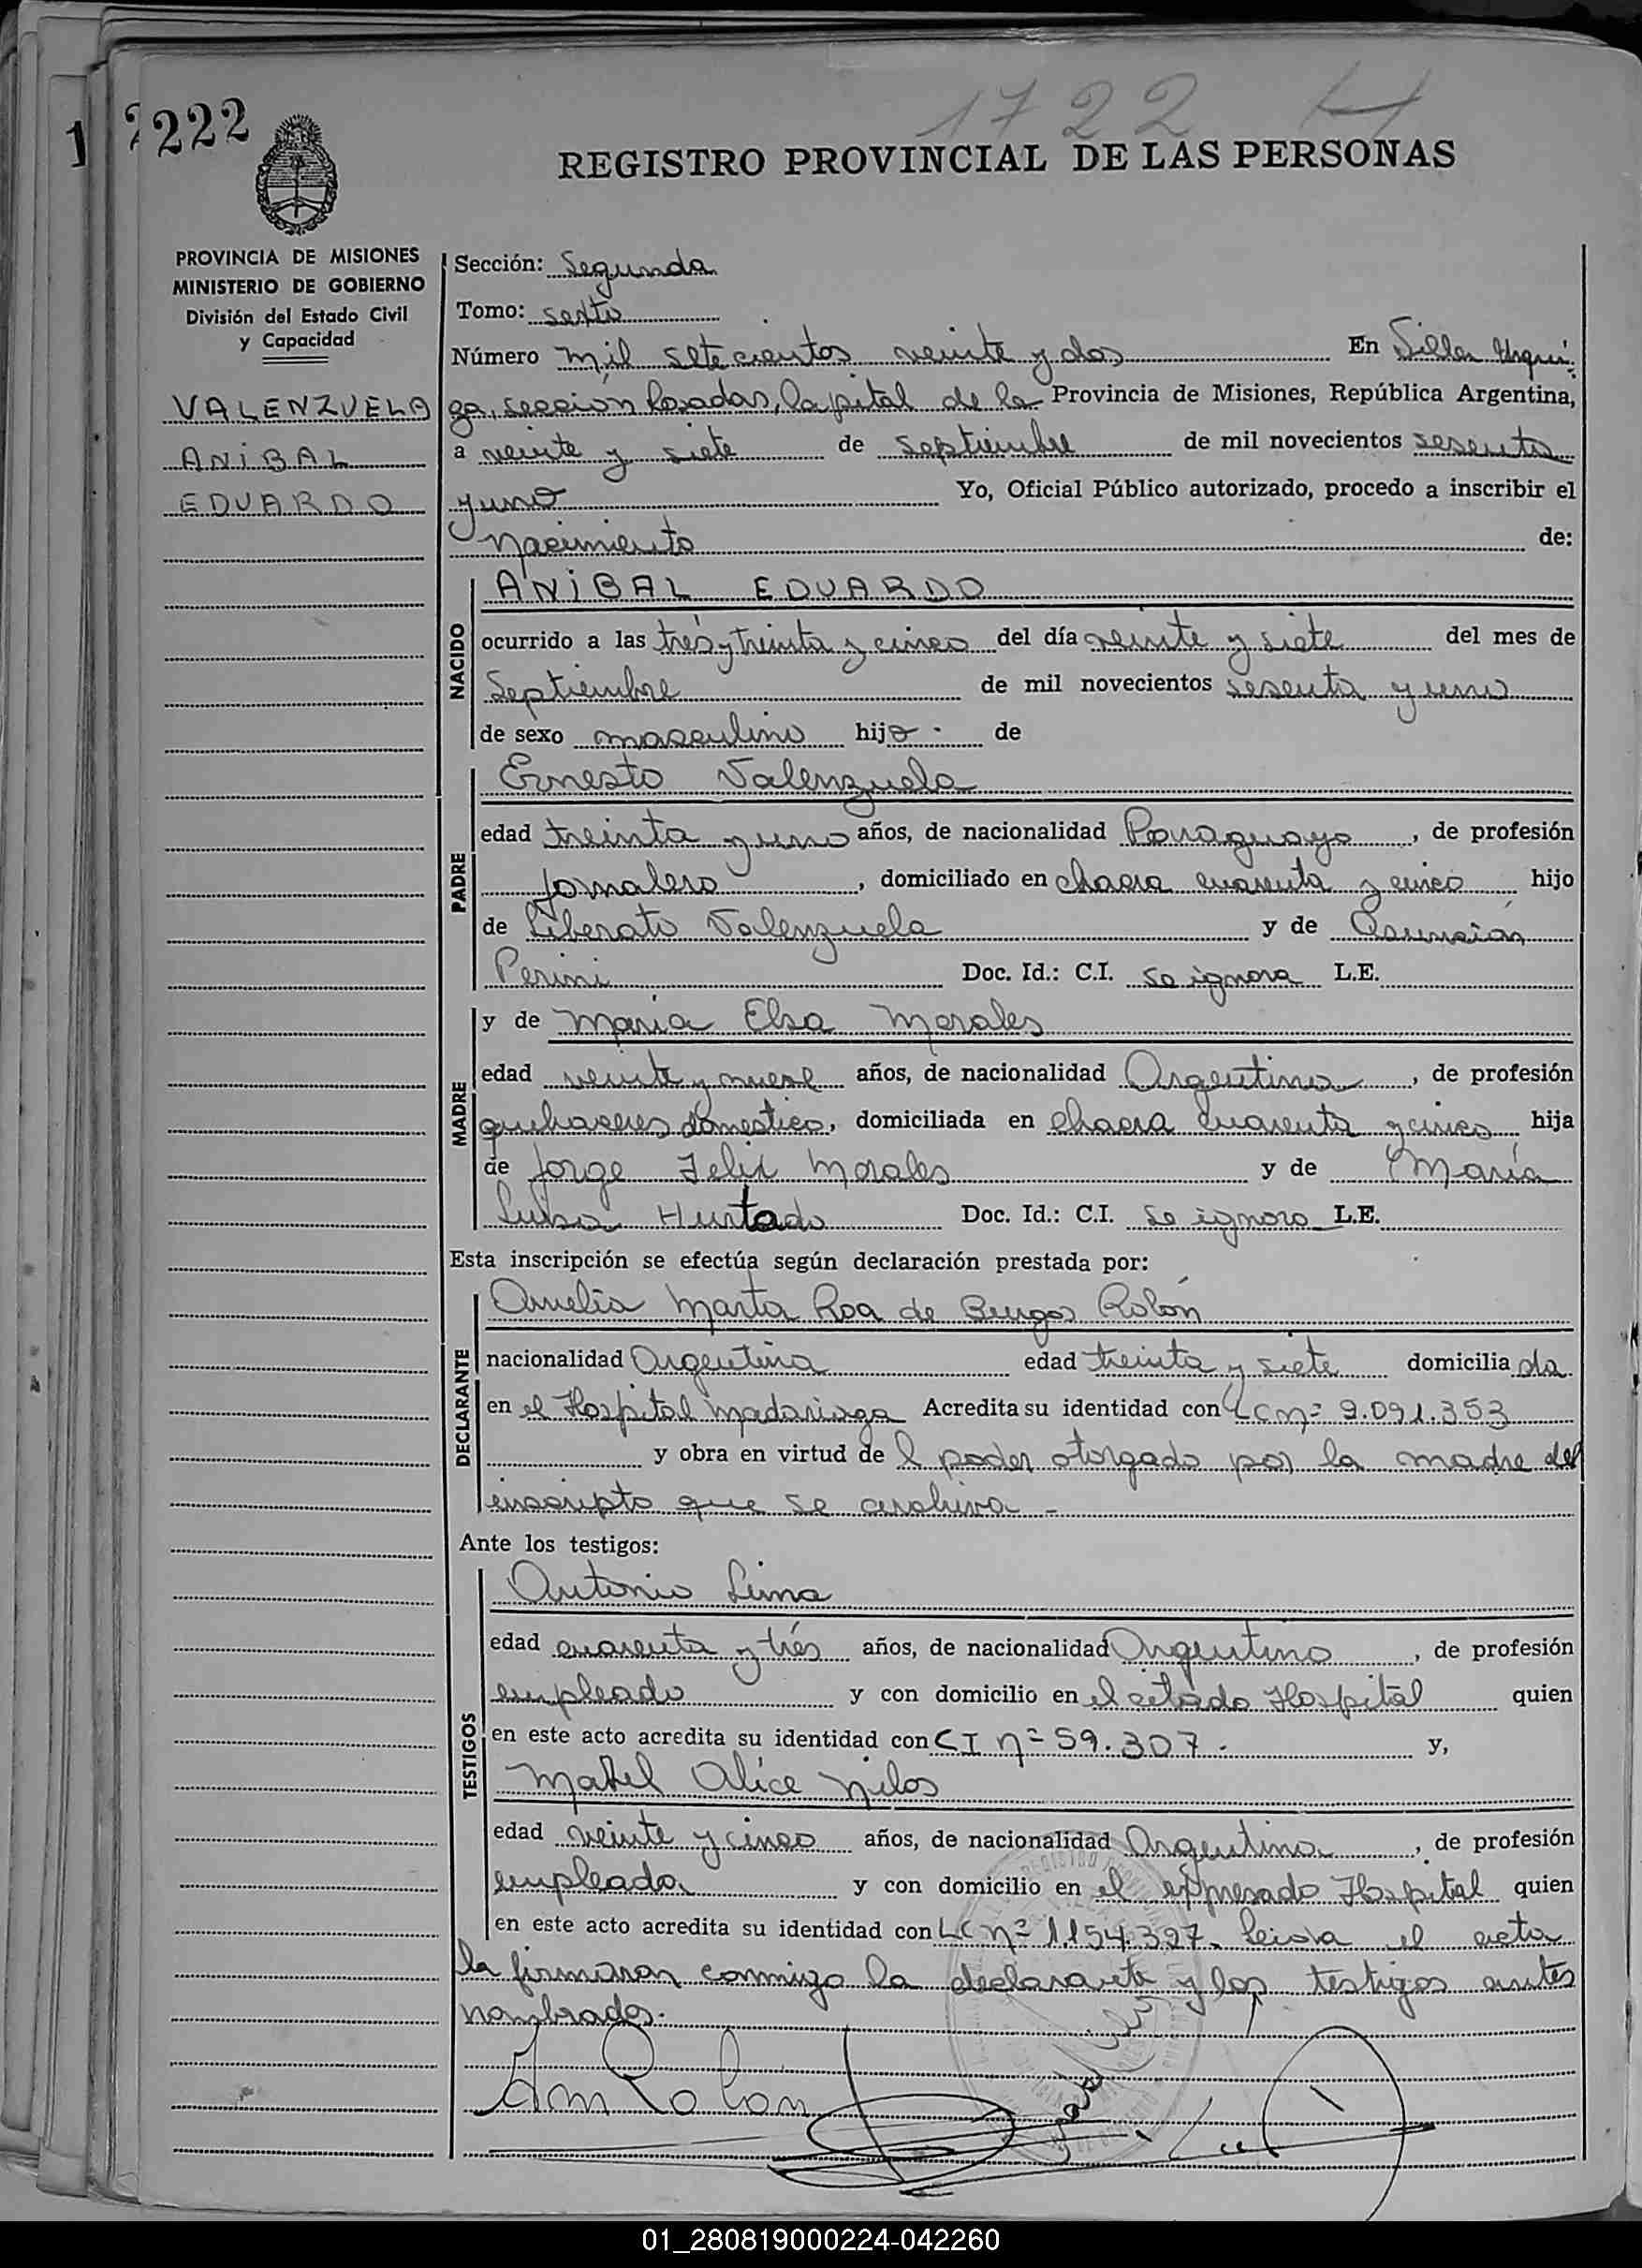 1722 H
1 2222
REGISTRO PROVINCIAL DE LAS PERSONAS
PROVINCIA DE MISIONES
MINISTERIO DE GOBIERNO
División del Estado Civil
y Capacidad
VALENZUELA
ANIBAL
EDUARDO
Sección: Segunda
Tomo: sexto
Número mil setecientos veinte y dos En Villa Urqui
ga, sección Posadas, Capital de la Provincia de Misiones, República Argentina,
a veinte y siete de septiembre de mil novecientos sesenta
y uno Yo, Oficial Público autorizado, procedo a inscribir el
Nacimiento de:
NACIDO
ANIBAL EDUARDO
ocurrido a las tres y treinta y cinco del día veinte y siete del mes de
Septiembre de mil novecientos sesenta y uno
de sexo masculino hijo de
PADRE
Ernesto Valenzuela
edad treinta y uno años, de nacionalidad Paraguayo, de profesión
jornalero, domiciliado en chacra cuarenta y cinco hijo
de Liberato Valenzuela y de Asunción
Perini Doc. Id.: C.I. se ignora L.E.
MADRE
y de María Elsa Morales
edad veinte y nueve años, de nacionalidad Argentina, de profesión
quehaceres domestico, domiciliada en chacra cuarenta y cinco hija
de Jorge Felix Morales y de María
Luisa Hurtado Doc. Id.: C.I. se ignora L.E.
Esta inscripción se efectúa según declaración prestada por:
DECLARANTE
Amelia Marta Roa de Burgos Rolón
nacionalidad Argentina edad treinta y siete domiciliada
en el Hospital Madariaga Acredita su identidad con LC nº 9.091.353
y obra en virtud del poder otorgado por la madre del
inscripto que se archiva -
Ante los testigos:
TESTIGOS
Antonio Lima
edad cuarenta y trés años, de nacionalidad Argentino, de profesión
empleado y con domicilio en el citado Hospital quien
en este acto acredita su identidad con CI nº 59.307. y,
Mabel Alice
edad veinte y cinco años, de nacionalidad Argentina, de profesión
empleada y con domicilio en el expresado Hospital quien
en este acto acredita su identidad con LC nº 1.154.397. Leida el acta
la firmaran conmigo la declarante y los testigos antes
nombrados.
Am Rolon
01_280819000224-042260